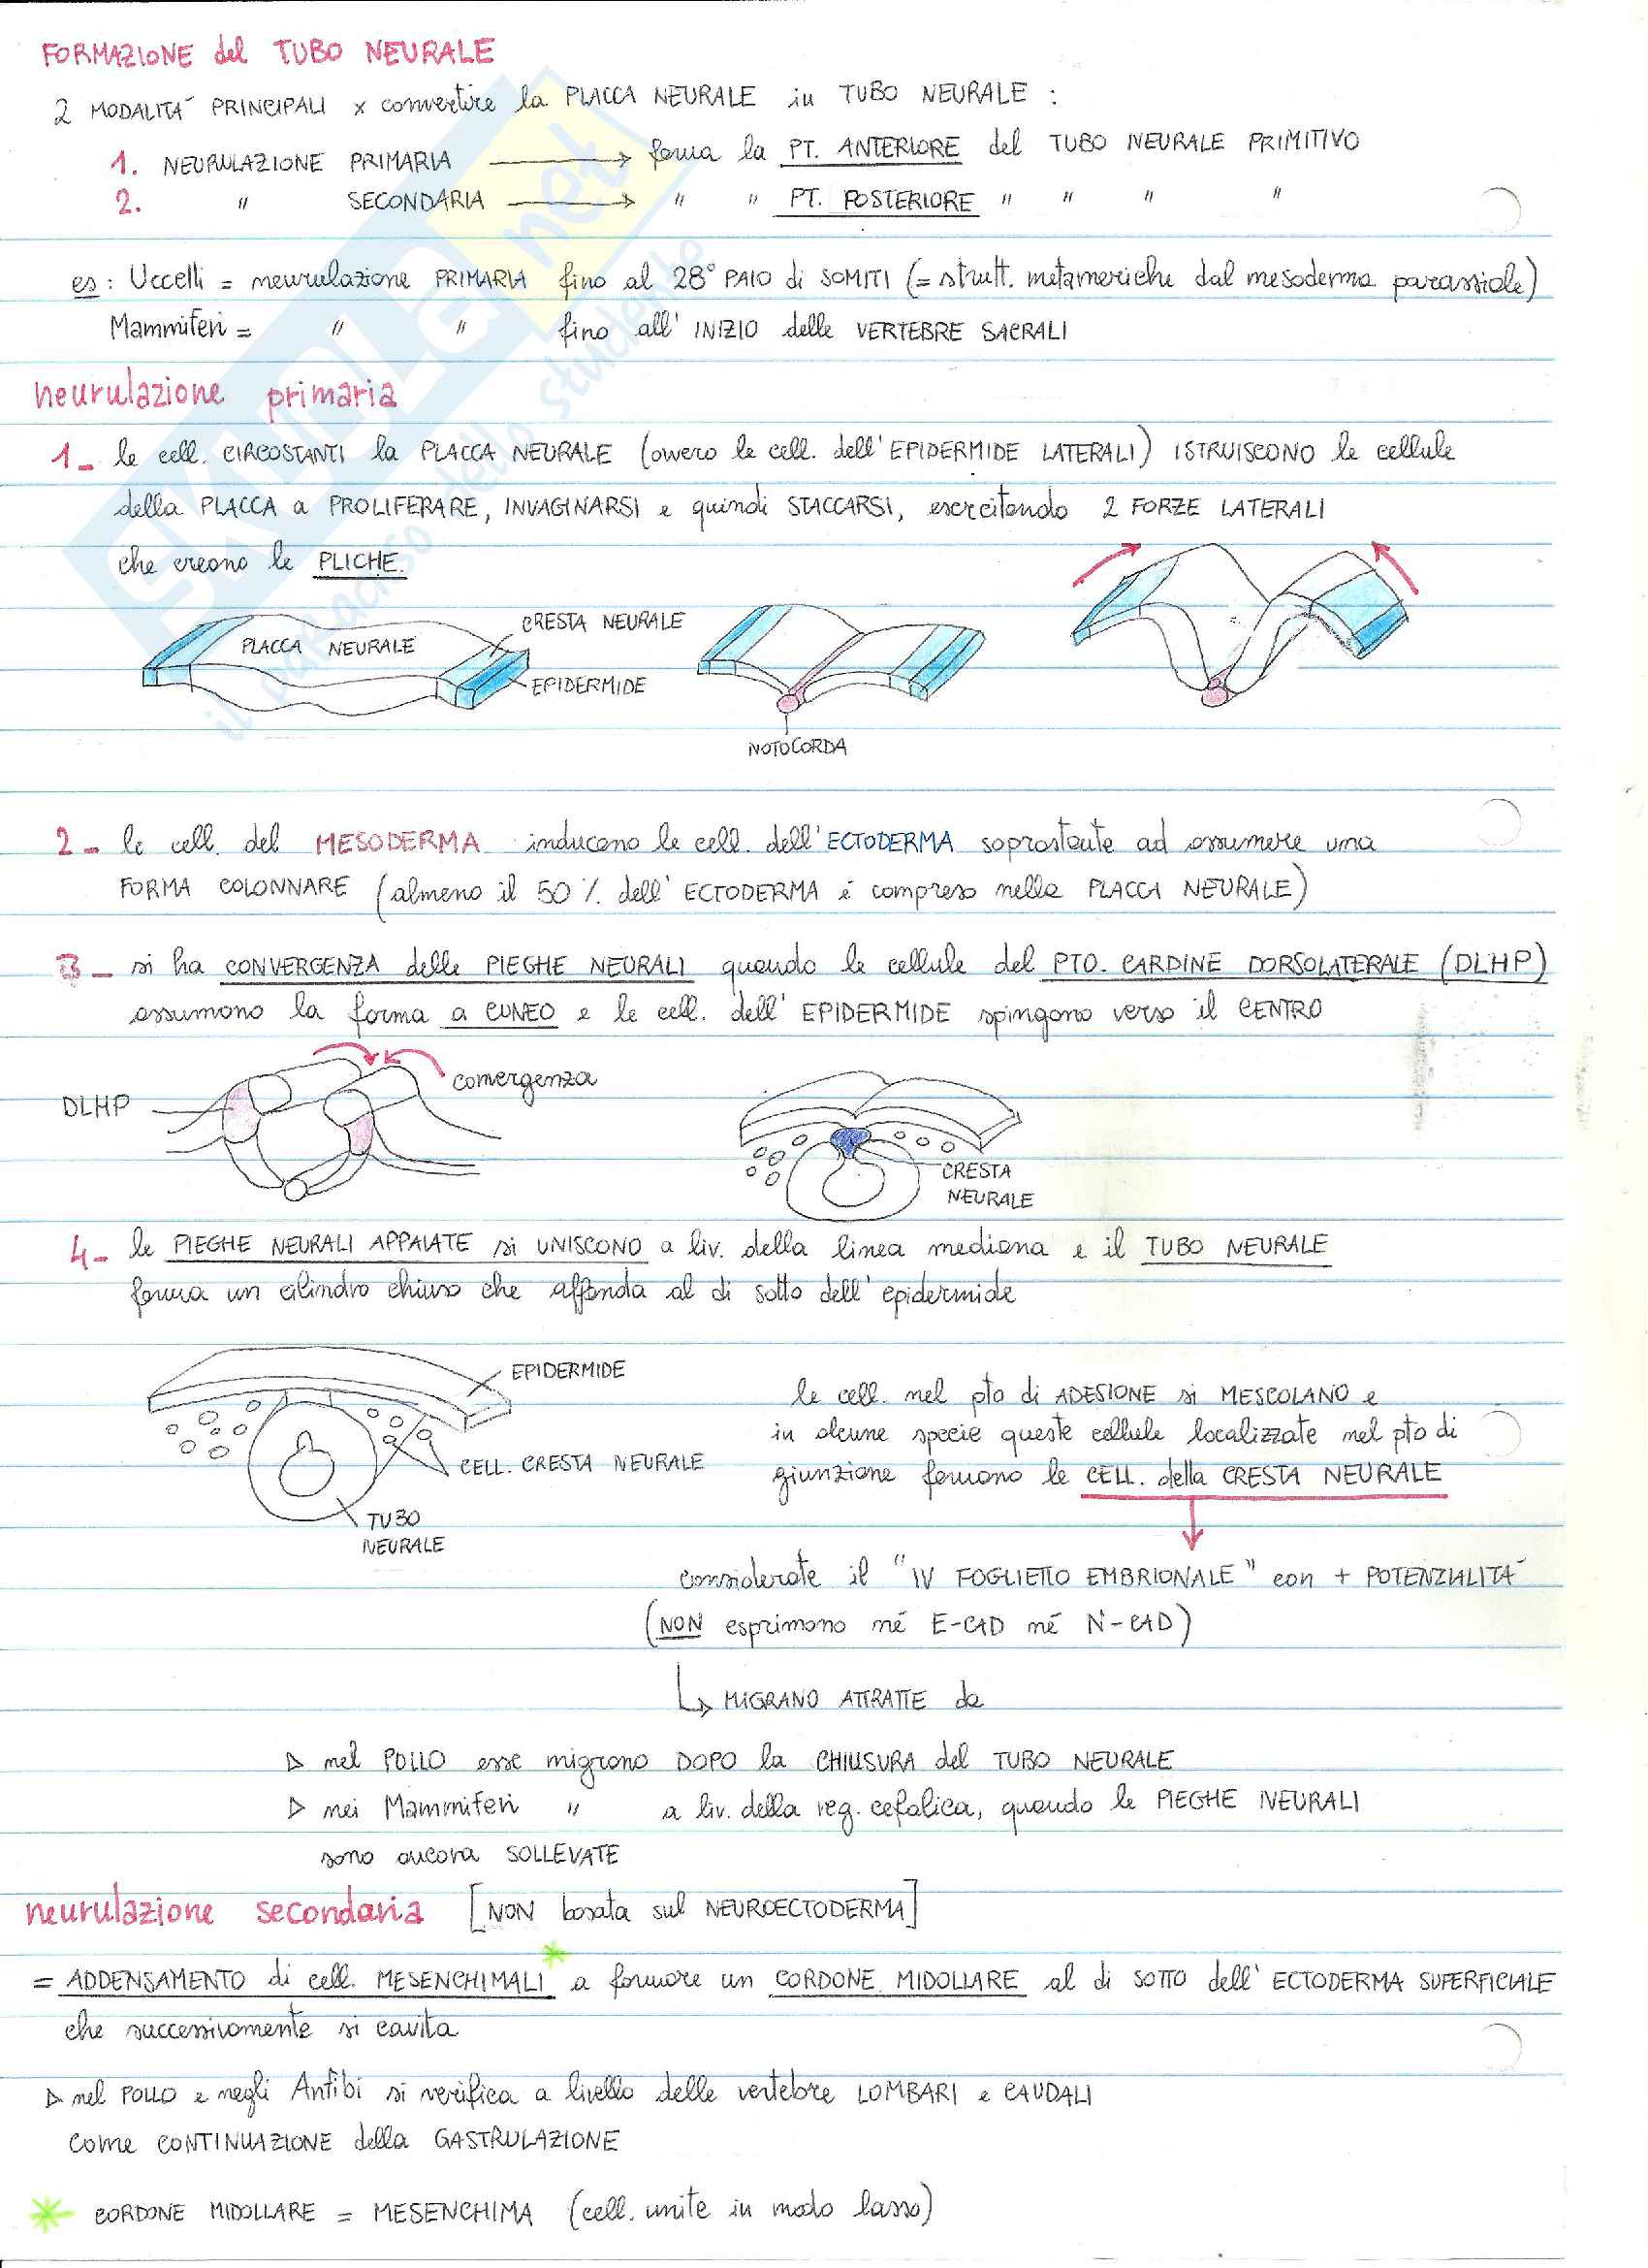 FORMAZIONE del TUBO NEURALE
2 MODALITÁ PRINCIPALI x convertire la PLACCA NEURALE in TUBO NEURALE :
1. NEURULAZIONE PRIMARIA → forma la PT. ANTERIORE del TUBO NEURALE PRIMITIVO
2. " SECONDARIA → " " PT. POSTERIORE " " " "
es: Uccelli = neurulazione PRIMARIA fino al 28° PAIO di SOMITI (= strutt. metameriche dal mesoderma parassiale)
Mammiferi = " " fino all' INIZIO delle VERTEBRE SACRALI
neurulazione primaria
1- le cell. CIRCOSTANTI la PLACCA NEURALE (ovvero le cell. dell'EPIDERMIDE LATERALI) ISTRUISCONO le cellule
della PLACCA a PROLIFERARE, INVAGINARSI e quindi STACCARSI, esercitando 2 FORZE LATERALI
che creano le PLICHE.
PLACCA NEURALE
CRESTA NEURALE
EPIDERMIDE
NOTOCORDA
2- le cell. del MESODERMA inducono le cell. dell'ECTODERMA soprastante ad assumere una
FORMA COLONNARE (almeno il 50% dell' ECTODERMA é compreso nella PLACCA NEURALE)
3- si ha CONVERGENZA delle PIEGHE NEURALI quando le cellule del PTO. CARDINE DORSOLATERALE (DLHP)
assumono la forma a CUNEO e le cell. dell' EPIDERMIDE spingono verso il CENTRO
DLHP
convergenza
CRESTA
NEURALE
4- le PIEGHE NEURALI APPAIATE si UNISCONO a liv. della linea mediana e il TUBO NEURALE
forma un cilindro chiuso che affonda al di sotto dell'epidermide
EPIDERMIDE
CELL. CRESTA NEURALE
TUBO
NEURALE
le cell. nel pto di ADESIONE si MESCOLANO e
in alcune specie queste cellule localizzate nel pto di
giunzione formano le CELL. della CRESTA NEURALE
considerate il "IV FOGLIETTO EMBRIONALE" con + POTENZIALITÁ
(NON esprimono né E-CAD né N-CAD)
↳ MIGRANO ATTRATTE da
▷ nel POLLO esse migrano DOPO la CHIUSURA del TUBO NEURALE
▷ nei Mammiferi " a liv. della reg. cefalica, quando le PIEGHE NEURALI
sono ancora SOLLEVATE
neurulazione secondaria [NON basata sul NEUROECTODERMA]
= ADDENSAMENTO di cell. MESENCHIMALI * a formare un CORDONE MIDOLLARE al di SOTTO dell' ECTODERMA SUPERFICIALE
che successivamente si cavita
▷ nel POLLO e negli Anfibi si verifica a livello delle vertebre LOMBARI e CAUDALI
come CONTINUAZIONE della GASTRULAZIONE
* CORDONE MIDOLLARE = MESENCHIMA (cell. unite in modo lasso)
SKUOLA.net
il paradiso dello studente